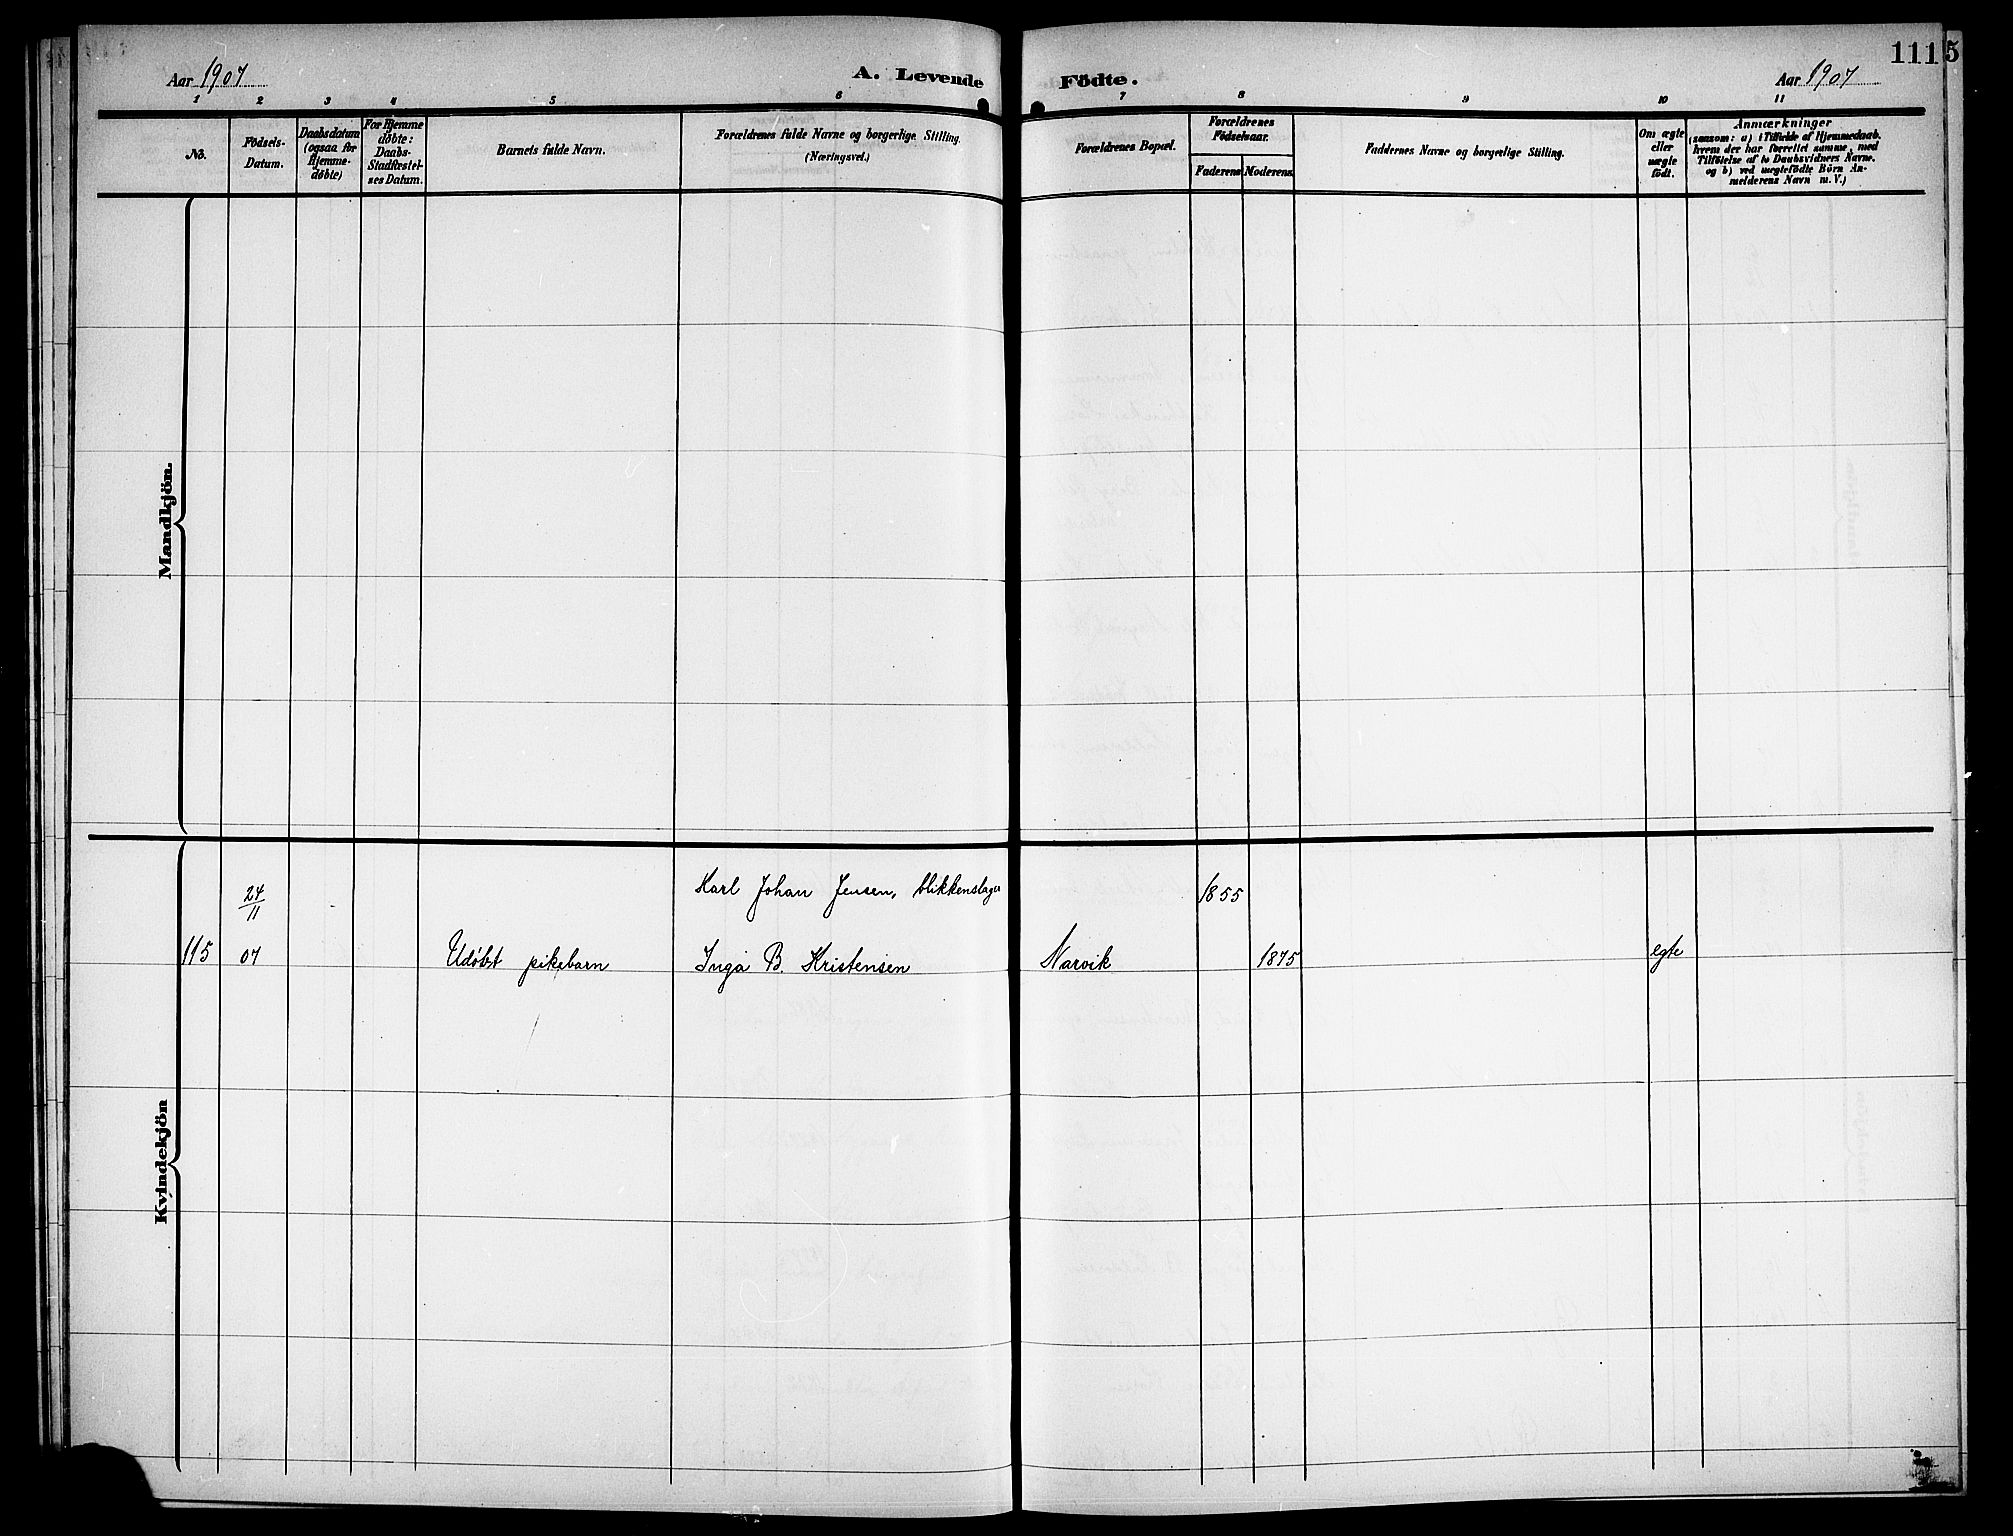 Aar 1907
A. Levende
Födte.
Aar 1907
111
5
1 2 3 4 5 6 7 8 9 10 11
No.
Födsels-
Datum.
Daabsdatum
(ogsaa for
Hjemme-
døbte)
For Hjemme
døbte:
Daabs-
Stadfæstel-
ses Datum.
Barnets fulde Navn.
Forældrenes fulde Navne og borgerlige Stilling.
(Næringsvei.)
Forældrenes Bopæl.
Forældrenes
Födselsaar.
Faderens
Moderens
Faddernes Navne og borgerlige Stilling.
Om ægte
eller
uægte
födt.
Anmærkninger
(saasom: a) i Tilfælde af Hjemmedaab.
hvem der har forrettet samme, med
Tilföielse af to Daabsvidners Navne.
og b) ved uægtefödte Börn An-
melderens Navn m. V.)
Mandkjön.
Kvindekjön
24/11
Karl Johan Jensen, blikkenslager
1855
115
07
Udøbt pikebarn
Inga B. Kristensen
Narvik
1875
egte